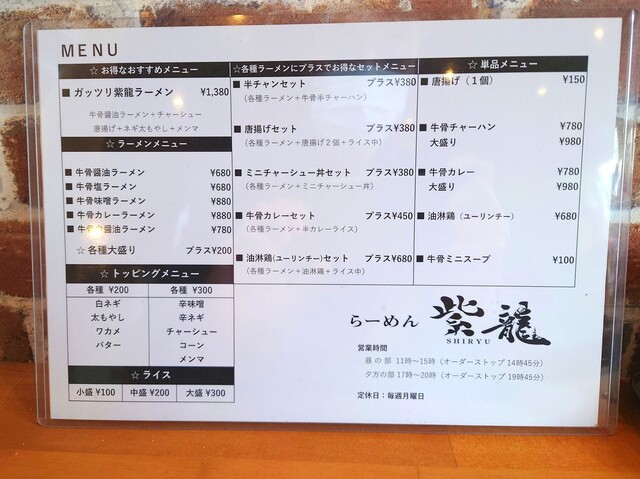 MENU
☆ お得なおすすめメニュー
■ ガッツリ紫龍ラーメン ¥1,380
牛骨醤油ラーメン＋チャーシュー
唐揚げ＋ネギ太もやし＋メンマ
☆ ラーメンメニュー
■ 牛骨醤油ラーメン ¥680
■ 牛骨塩ラーメン ¥680
■ 牛骨味噌ラーメン ¥880
■ 牛骨カレーラーメン ¥880
■ 牛骨 醤油ラーメン ¥780
☆ 各種大盛り プラス¥200
☆ トッピングメニュー
各種 ¥200 各種 ¥300
白ネギ 辛味噌
太もやし 辛ネギ
ワカメ チャーシュー
バター コーン
メンマ
☆ ライス
小盛 ¥100 中盛 ¥200 大盛 ¥300
☆各種ラーメンにプラスでお得なセットメニュー
■ 半チャンセット プラス¥380
（各種ラーメン＋牛骨半チャーハン）
■ 唐揚げセット プラス¥380
（各種ラーメン＋唐揚げ２個＋ライス中）
■ ミニチャーシュー丼セット プラス¥380
（各種ラーメン＋ミニチャーシュー丼）
■ 牛骨カレーセット プラス¥450
（各種ラーメン＋半カレーライス）
■ 油淋鶏(ユーリンチー)セット プラス¥680
（各種ラーメン＋油淋鶏＋ライス中）
☆ 単品メニュー
■ 唐揚げ（１個） ¥150
■ 牛骨チャーハン ¥780
大盛り ¥980
■ 牛骨カレー ¥780
大盛り ¥980
■ 油淋鶏（ユーリンチー） ¥680
■ 牛骨ミニスープ ¥100
らーめん 紫龍
SHIRYU
営業時間
昼の部 11時〜15時（オーダーストップ 14時45分）
夕方の部 17時〜20時（オーダーストップ 19時45分）
定休日：毎週月曜日